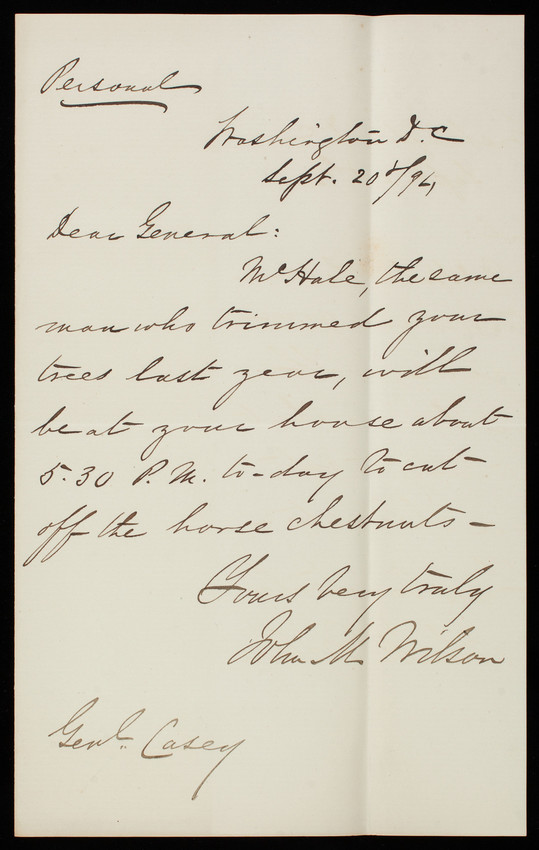 Personal
Washington D.C
Sept. 20th/94
Dear General:
McHale, the same
man who trimmed your
trees last year, will
be at your house about
5.30 P.M. to-day to cut
off the horse chestnuts -
Yours very truly
John M. Wilson
Genl. Casey